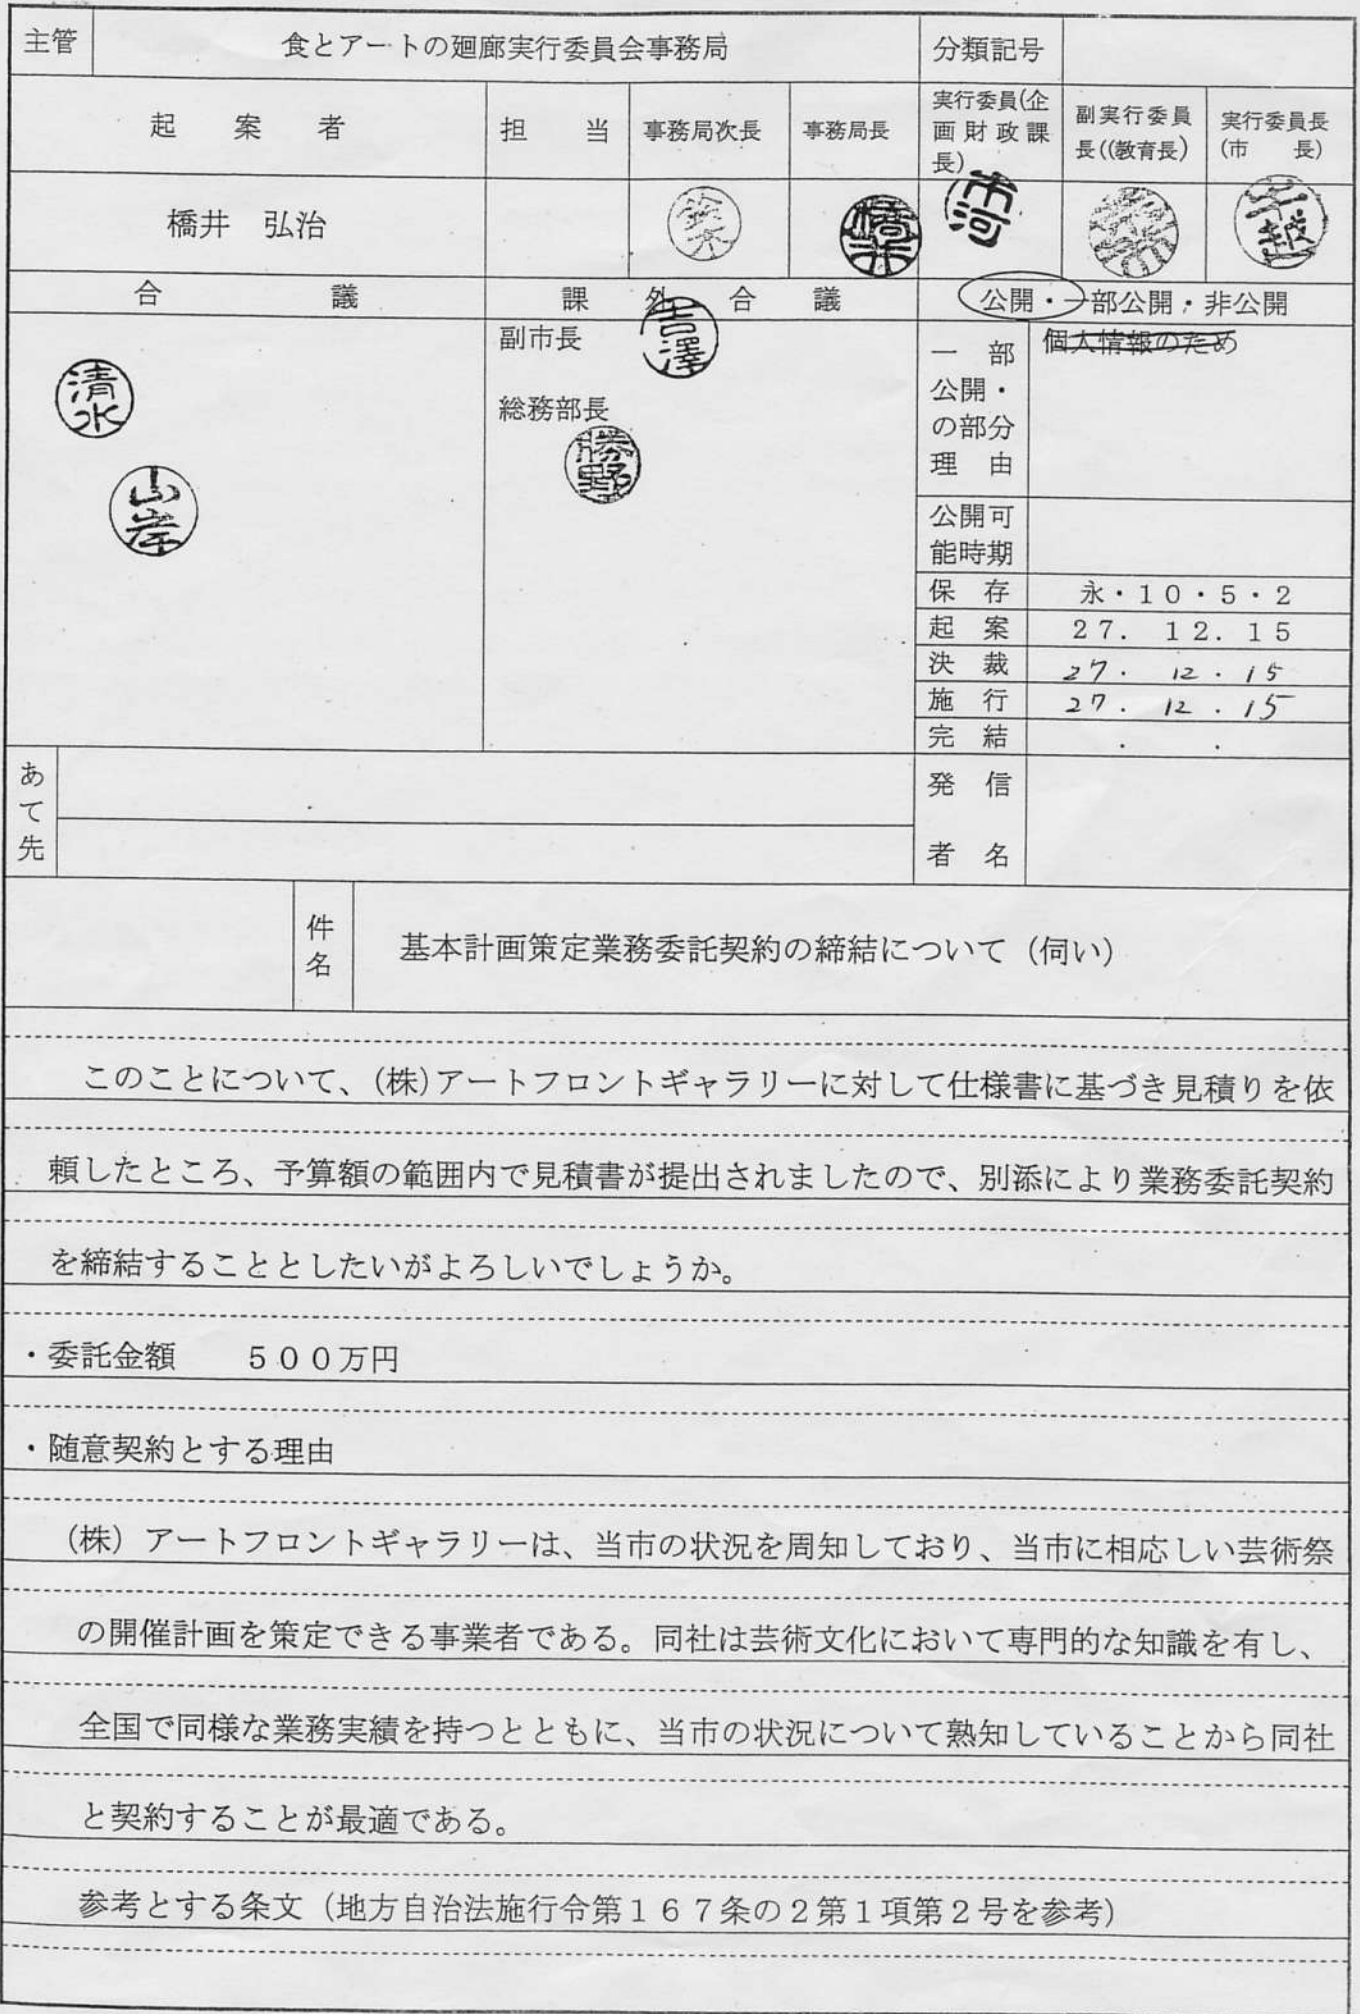 主管 食とアートの廻廊実行委員会事務局 分類記号
起案者 担当 事務局次長 事務局長
実行委員(企
画財政課
長)
副実行委員
長((教育長)
実行委員長
(市長)
橋井 弘治 鈴木 橋井 市河 千越
合議 課外合議 公開・一部公開・非公開
清水
山岸
副市長 吉澤
総務部長
勝野
一部
公開・
の部分
理由
個人情報のため
公開可
能時期
保存 永・10・5・2
起案 27. 12. 15
決裁 27. 12. 15
施行 27. 12. 15
完結 . .
あて先
発信
者名
件名 基本計画策定業務委託契約の締結について(伺い)
このことについて、(株)アートフロントギャラリーに対して仕様書に基づき見積りを依
頼したところ、予算額の範囲内で見積書が提出されましたので、別添により業務委託契約
を締結することとしたいがよろしいでしょうか。
・委託金額 500万円
・随意契約とする理由
(株)アートフロントギャラリーは、当市の状況を周知しており、当市に相応しい芸術祭
の開催計画を策定できる事業者である。同社は芸術文化において専門的な知識を有し、
全国で同様な業務実績を持つとともに、当市の状況について熟知していることから同社
と契約することが最適である。
参考とする条文(地方自治法施行令第167条の2第1項第2号を参考)